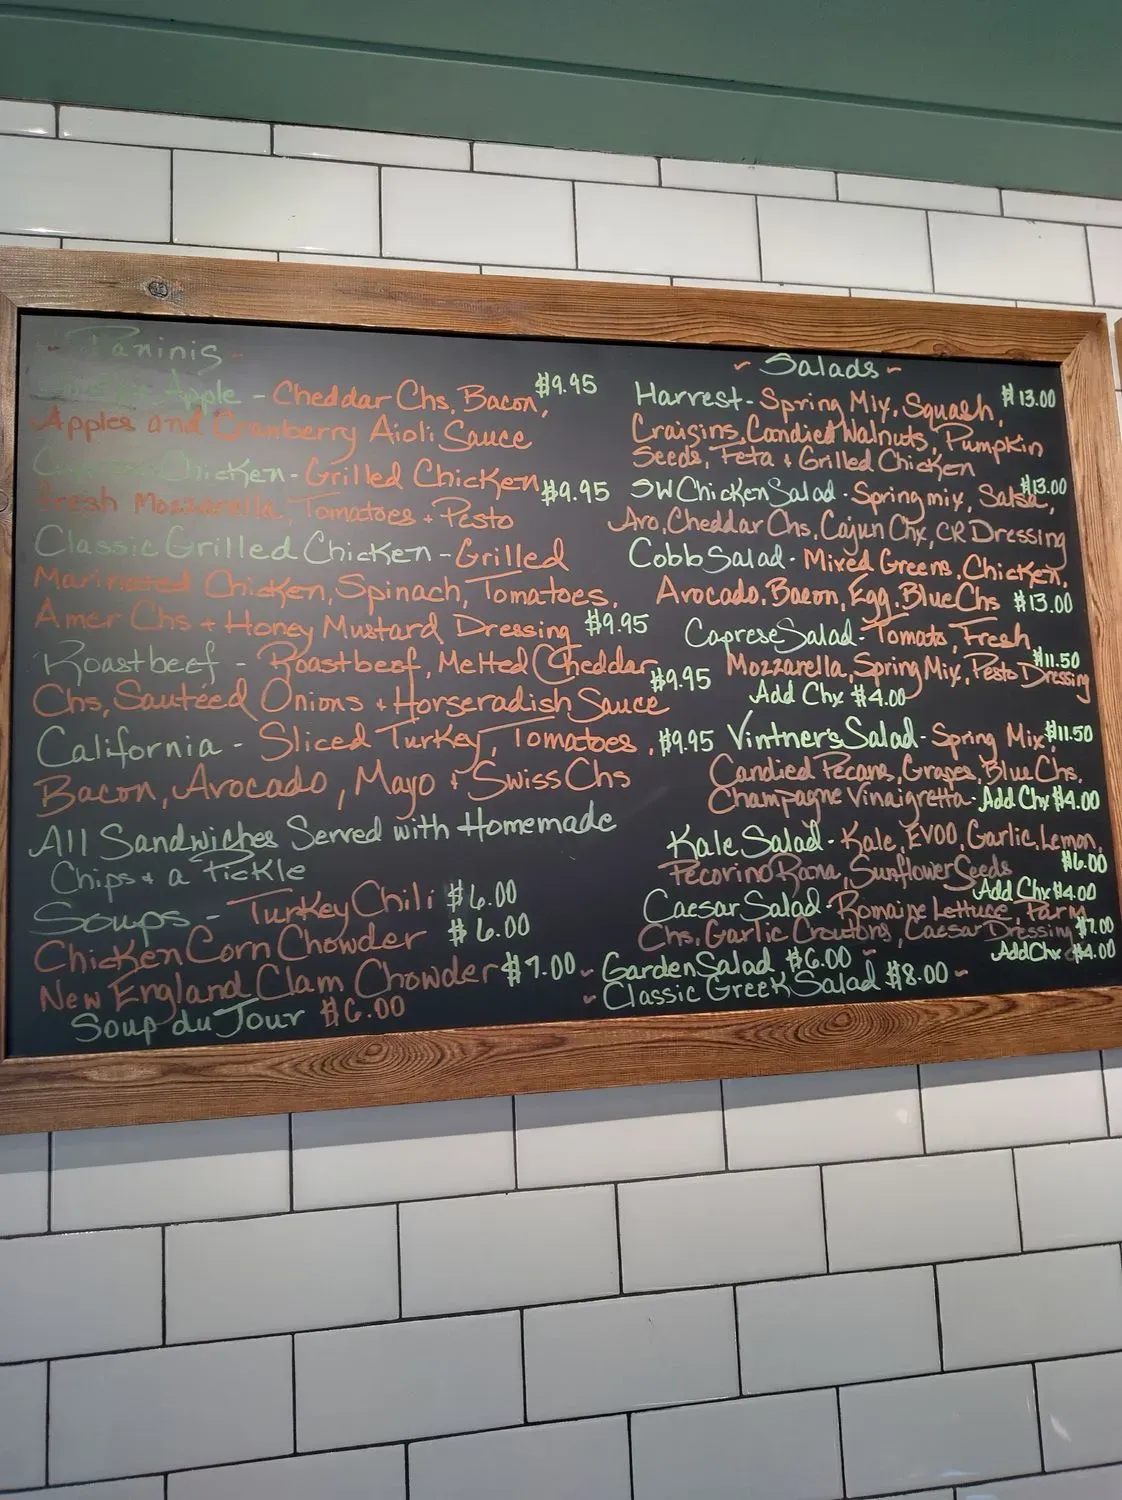 ~ Paninis ~
Apple - Cheddar Chs, Bacon, $9.95
Apples and Cranberry Aioli Sauce
Chicken - Grilled Chicken,
Fresh Mozzarella, Tomatoes + Pesto $9.95
Classic Grilled Chicken - Grilled
Marinated Chicken, Spinach, Tomatoes,
Amer Chs + Honey Mustard Dressing $9.95
Roastbeef - Roastbeef, Melted Cheddar
Chs, Sautéed Onions + Horseradish Sauce $9.95
California - Sliced Turkey, Tomatoes, $9.95
Bacon, Avocado, Mayo + Swiss Chs
All Sandwiches Served with Homemade
Chips + a Pickle
Soups - Turkey Chili $6.00
Chicken Corn Chowder $6.00
New England Clam Chowder $7.00
Soup du Jour $6.00
~ Salads ~
Harvest - Spring Mix, Squash, $13.00
Craisins, Candied Walnuts, Pumpkin
Seeds, Feta + Grilled Chicken
SW Chicken Salad - Spring mix, Salsa, $13.00
Avo, Cheddar Chs, Cajun Chx, CR Dressing
Cobb Salad - Mixed Greens, Chicken,
Avocado, Bacon, Egg, Blue Chs $13.00
Caprese Salad - Tomato, Fresh
Mozzarella, Spring Mix, Pesto Dressing $11.50
Add Chx $4.00
Vintner's Salad - Spring Mix $11.50
Candied Pecans, Grapes, Blue Chs,
Champagne Vinaigretta - Add Chx $4.00
Kale Salad - Kale, EVOO, Garlic, Lemon,
Pecorino Roma, Sunflower Seeds $6.00
Add Chx $4.00
Caesar Salad - Romaine Lettuce, Parm
Chs, Garlic Croutons, Caesar Dressing $7.00
Add Chx $4.00
~ Garden Salad $6.00 ~
~ Classic Greek Salad $8.00 ~